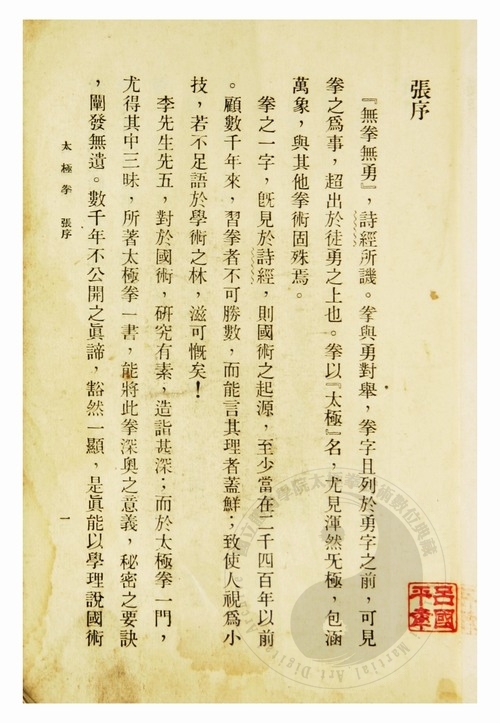 張序
『無拳無勇』，詩經所譏。拳與勇對舉，拳字且列於勇字之前，可見
拳之爲事，超出於徒勇之上也。拳以『太極』名，尤見渾然无極，包涵
萬象，與其他拳術固殊焉。
拳之一字，旣見於詩經，則國術之起源，至少當在二千四百年以前
。顧數千年來，習拳者不可勝數，而能言其理者蓋鮮；致使人視爲小
技，若不足語於學術之林，滋可慨矣！
李先生先五，對於國術，硏究有素，造詣甚深；而於太極拳一門，
尤得其中三昧，所著太極拳一書，能將此拳深奧之意義，秘密之要訣
，闡發無遺。數千年不公開之眞諦，豁然一顯，是眞能以學理說國術
太極拳 張序
一
Martial Art. Digi